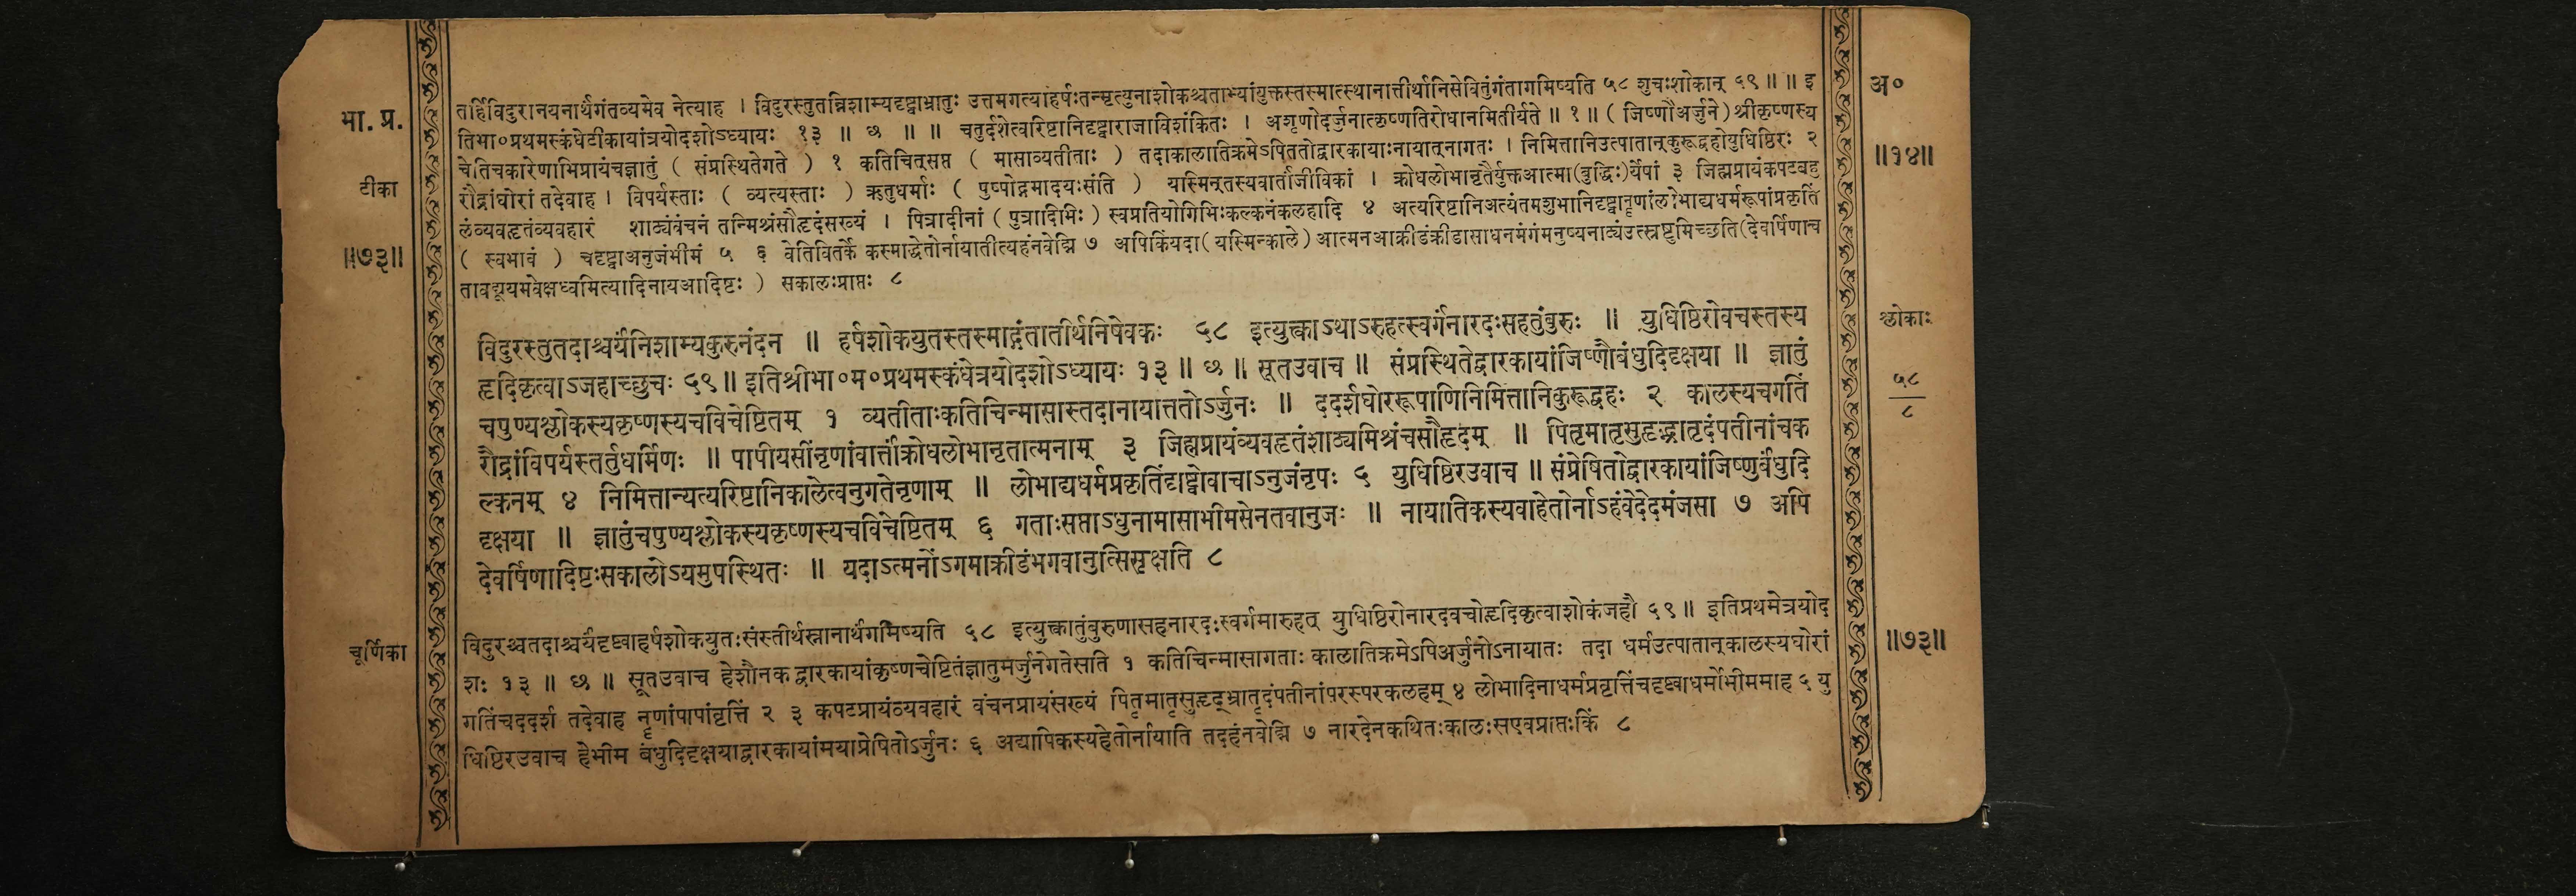 भा. प्र.
टीका
॥७३॥
चूर्णिका
तर्हिविदुरानयनार्थंगंतव्यमेव नेत्याह । विदुरस्तुतन्निशाम्यदृष्ट्वाभ्रातुः उत्तमगत्याहर्षःतन्मृत्युनाशोकश्चताभ्यांयुक्तस्तस्मात्स्थानात्तीर्थानिसेवितुंगंतागमिष्यति ५८ शुचःशोकान् ५९ ॥ ॥ इ
तिभा०प्रथमस्कंधेटीकायांत्रयोदशोऽध्यायः १३ ॥ छ ॥ ॥ चतुर्दशेत्वरिष्टानिदृष्ट्वाराजाविशंकितः । अशृणोदर्जुनात्कृष्णतिरोधानमितीर्यते ॥ १ ॥ ( जिष्णौअर्जुने ) श्रीकृष्णस्य
चेतिचकारेणाभिप्रायंचज्ञातुं ( संप्रस्थितेगते ) १ कतिचित्सप्त ( मासाव्यतीताः ) तदाकालातिक्रमेऽपिततोद्वारकायाःनायात्नागतः । निमित्तानिउत्पातान्कुरूद्वहोयुधिष्ठिरः २
रौद्रांघोरां तदेवाह । विपर्यस्ताः ( व्यत्यस्ताः ) ऋतुधर्माः ( पुष्पोद्गमादयःसंति ) यस्मिन्तस्यवार्ताजीविकां । क्रोधलोभानृतैर्युक्तआत्मा(बुद्धिः)र्येषां ३ जिह्मप्रायंकपटबहु
लंव्यवहृतंव्यवहारं शाठ्यंवंचनं तन्मिश्रंसौहृदंसख्यं । पित्रादीनां ( पुत्रादिभिः ) स्वप्रतियोगिभिःकल्कनंकलहादि ४ अत्यरिष्टानिअत्यंतमशुभानिदृष्ट्वानृणांलोभाद्यधर्मरूपांप्रकृतिं
( स्वभावं ) चदृष्ट्वाअनुजंभीमं ५ ६ वेतिवितर्के कस्माद्धेतोर्नायातीत्यहंनवेद्मि ७ अपिकिंयदा ( यस्मिन्काले ) आत्मनआक्रीडंक्रीडासाधनमंगंमनुष्यनाट्यंउत्स्रष्टुमिच्छति (देवर्षिणाच
तावद्यूयमवेक्षध्वमित्यादिनायआदिष्टः ) सकालःप्राप्तः ८
विदुरस्तुतदाश्चर्यंनिशाम्यकुरुनंदन ॥ हर्षशोकयुतस्तस्माद्गंतातीर्थनिषेवकः ५८ इत्युक्त्वाऽथाऽरुहत्स्वर्गंनारदःसहतुंबुरुः ॥ युधिष्ठिरोवचस्तस्य
हृदिकृत्वाऽजहाच्छुचः ५९ ॥ इतिश्रीभा०म०प्रथमस्कंधेत्रयोदशोऽध्यायः १३ ॥ छ ॥ सूतउवाच ॥ संप्रस्थितेद्वारकायांजिष्णौबंधुदिदृक्षया ॥ ज्ञातुं
चपुण्यश्लोकस्यकृष्णस्यचविचेष्टितम् १ व्यतीताःकतिचिन्मासास्तदानायात्ततोऽर्जुनः ॥ ददर्शघोररूपाणिनिमित्तानिकुरूद्वहः २ कालस्यचगतिं
रौद्रांविपर्यस्तर्तुधर्मिणः ॥ पापीयसींनृणांवार्त्तांक्रोधलोभानृतात्मनाम् ३ जिह्मप्रायंव्यवहृतंशाठ्यमिश्रंचसौहृदम् ॥ पितृमातृसुहृद्भ्रातृदंपतीनांचक
ल्कनम् ४ निमित्तान्यत्यरिष्टानिकालेत्वनुगतेनृणाम् ॥ लोभाद्यधर्मप्रकृतिंदृष्ट्वोवाचाऽनुजंनृपः ५ युधिष्ठिरउवाच ॥ संप्रेषितोद्वारकायांजिष्णुर्बंधुदि
दृक्षया ॥ ज्ञातुंचपुण्यश्लोकस्यकृष्णस्यचविचेष्टितम् ६ गताःसप्ताऽधुनामासाभीमसेनतवानुजः ॥ नायातिकस्यवाहेतोर्नाऽहंवेदेदमंजसा ७ अपि
देवर्षिणादिष्टःसकालोऽयमुपस्थितः ॥ यदाऽत्मनोंऽगमाक्रीडंभगवानुत्सिसृक्षति ८
विदुरश्चतदाश्चर्यंदृष्ट्वाहर्षशोकयुतःसंस्तीर्थस्नानार्थंगमिष्यति ५८ इत्युक्त्वातुंबुरुणासहनारदःस्वर्गमारुहत् युधिष्ठिरोनारदवचोहृदिकृत्वाशोकंजहौ ५९ ॥ इतिप्रथमेत्रयोद
शः १३ ॥ छ ॥ सूतउवाच हेशौनक द्वारकायांकृष्णचेष्टितंज्ञातुमर्जुनेगतेसति १ कतिचिन्मासागताः कालातिक्रमेऽपिअर्जुनोऽनायातः तदा धर्मउत्पातान्कालस्यघोरां
गतिंचददर्श तदेवाह नृणांपापांवृत्तिं २ ३ कपटप्रायंव्यवहारं वंचनप्रायंसख्यं पितृमातृसुहृद्भ्रातृदंपतीनांपरस्परकलहम् ४ लोभादिनाधर्मप्रवृत्तिंचदृष्ट्वाधर्मोभीममाह ५ यु
धिष्ठिरउवाच हेभीम बंधुदिदृक्षयाद्वारकायांमयाप्रेषितोऽर्जुनः ६ अद्यापिकस्यहेतोर्नायाति तदहंनवेद्मि ७ नारदेनकथितःकालःसएवप्राप्तःकिं ८
अ०
॥१४॥
श्लोकाः
५८
८
॥७३॥